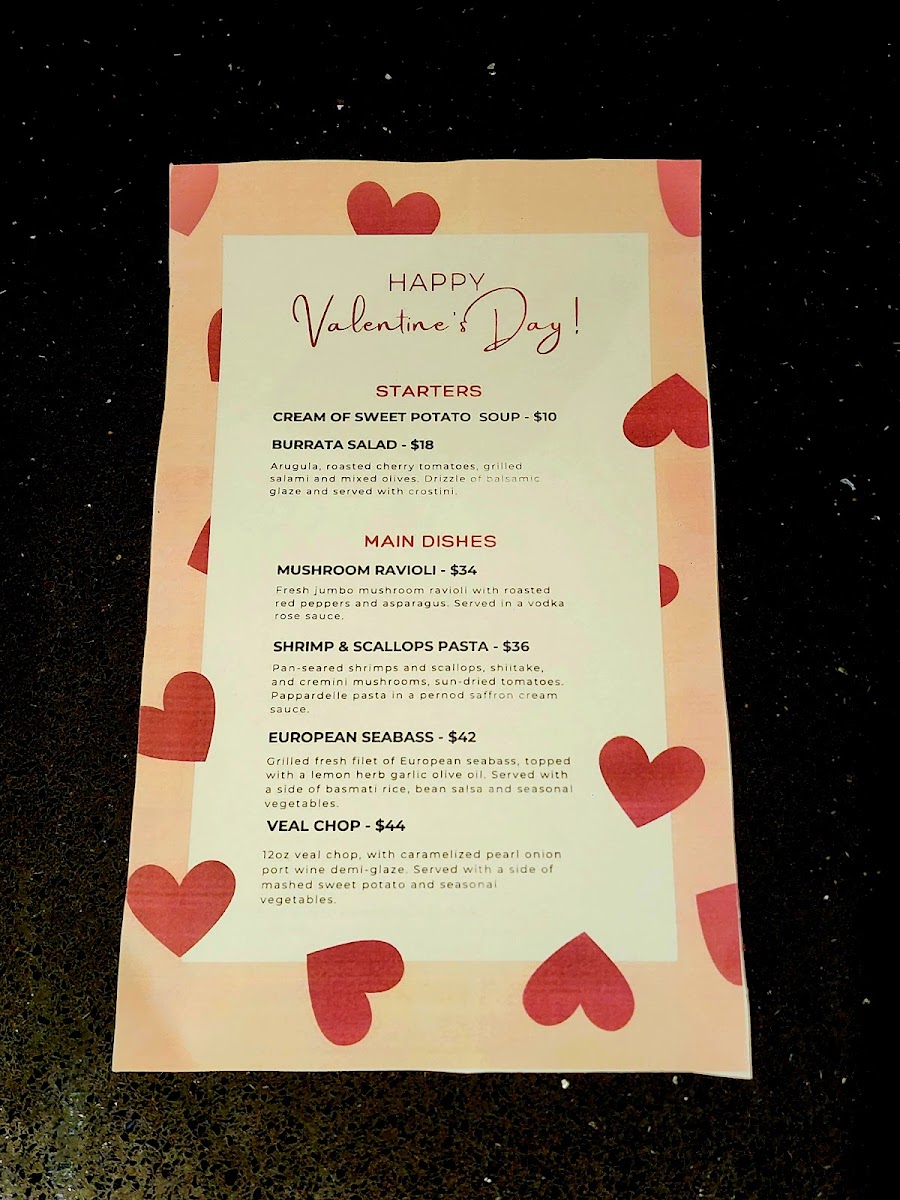 HAPPY
Valentine's Day!
STARTERS
CREAM OF SWEET POTATO SOUP - $10
BURRATA SALAD - $18
Arugula, roasted cherry tomatoes, grilled
salami and mixed olives. Drizzle of balsamic
glaze and served with crostini.
MAIN DISHES
MUSHROOM RAVIOLI - $34
Fresh jumbo mushroom ravioli with roasted
red peppers and asparagus. Served in a vodka
rose sauce.
SHRIMP & SCALLOPS PASTA - $36
Pan-seared shrimps and scallops, shiitake,
and cremini mushrooms, sun-dried tomatoes.
Pappardelle pasta in a pernod saffron cream
sauce.
EUROPEAN SEABASS - $42
Grilled fresh filet of European seabass, topped
with a lemon herb garlic olive oil. Served with
a side of basmati rice, bean salsa and seasonal
vegetables.
VEAL CHOP - $44
12oz veal chop, with caramelized pearl onion
port wine demi-glaze. Served with a side of
mashed sweet potato and seasonal
vegetables.